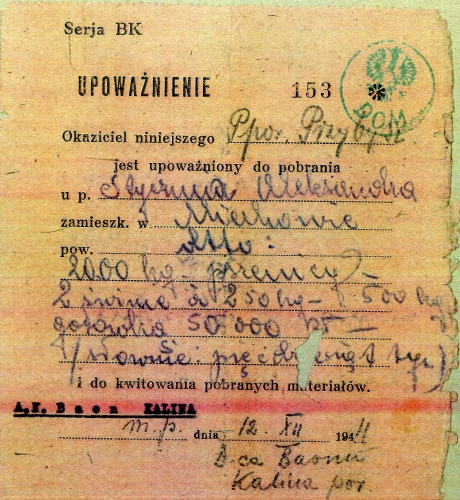 Serja BK
UPOWAŻNIENIE 153
DOM
Okaziciel niniejszego Ppor. Przybysz
jest upoważniony do pobrania
u p. Stycznia Aleksandra
zamieszk. w Miechowie
pow. ditto:
2000 kg pszenicy -
2 świnie à 250 kg - 500 kg
gotówka 50.000
(słownie: pięćdziesiąt tys.)
i do kwitowania pobranych materiałów.
A.K. Baon KALINA
m.p. dnia 12. XII 1944
D-ca Baonu
Kalina por.